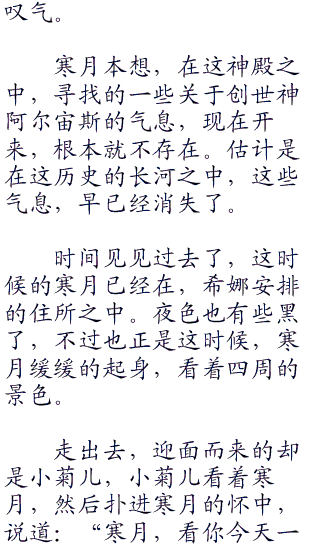 叹气。
寒月本想，在这神殿之
中，寻找的一些关于创世神
阿尔宙斯的气息，现在开
来，根本就不存在。估计是
在这历史的长河之中，这些
气息，早已经消失了。
时间见见过去了，这时
候的寒月已经在，希娜安排
的住所之中。夜色也有些黑
了，不过也正是这时候，寒
月缓缓的起身，看着四周的
景色。
走出去，迎面而来的却
是小菊儿，小菊儿看着寒
月，然后扑进寒月的怀中，
说道：“寒月，看你今天一